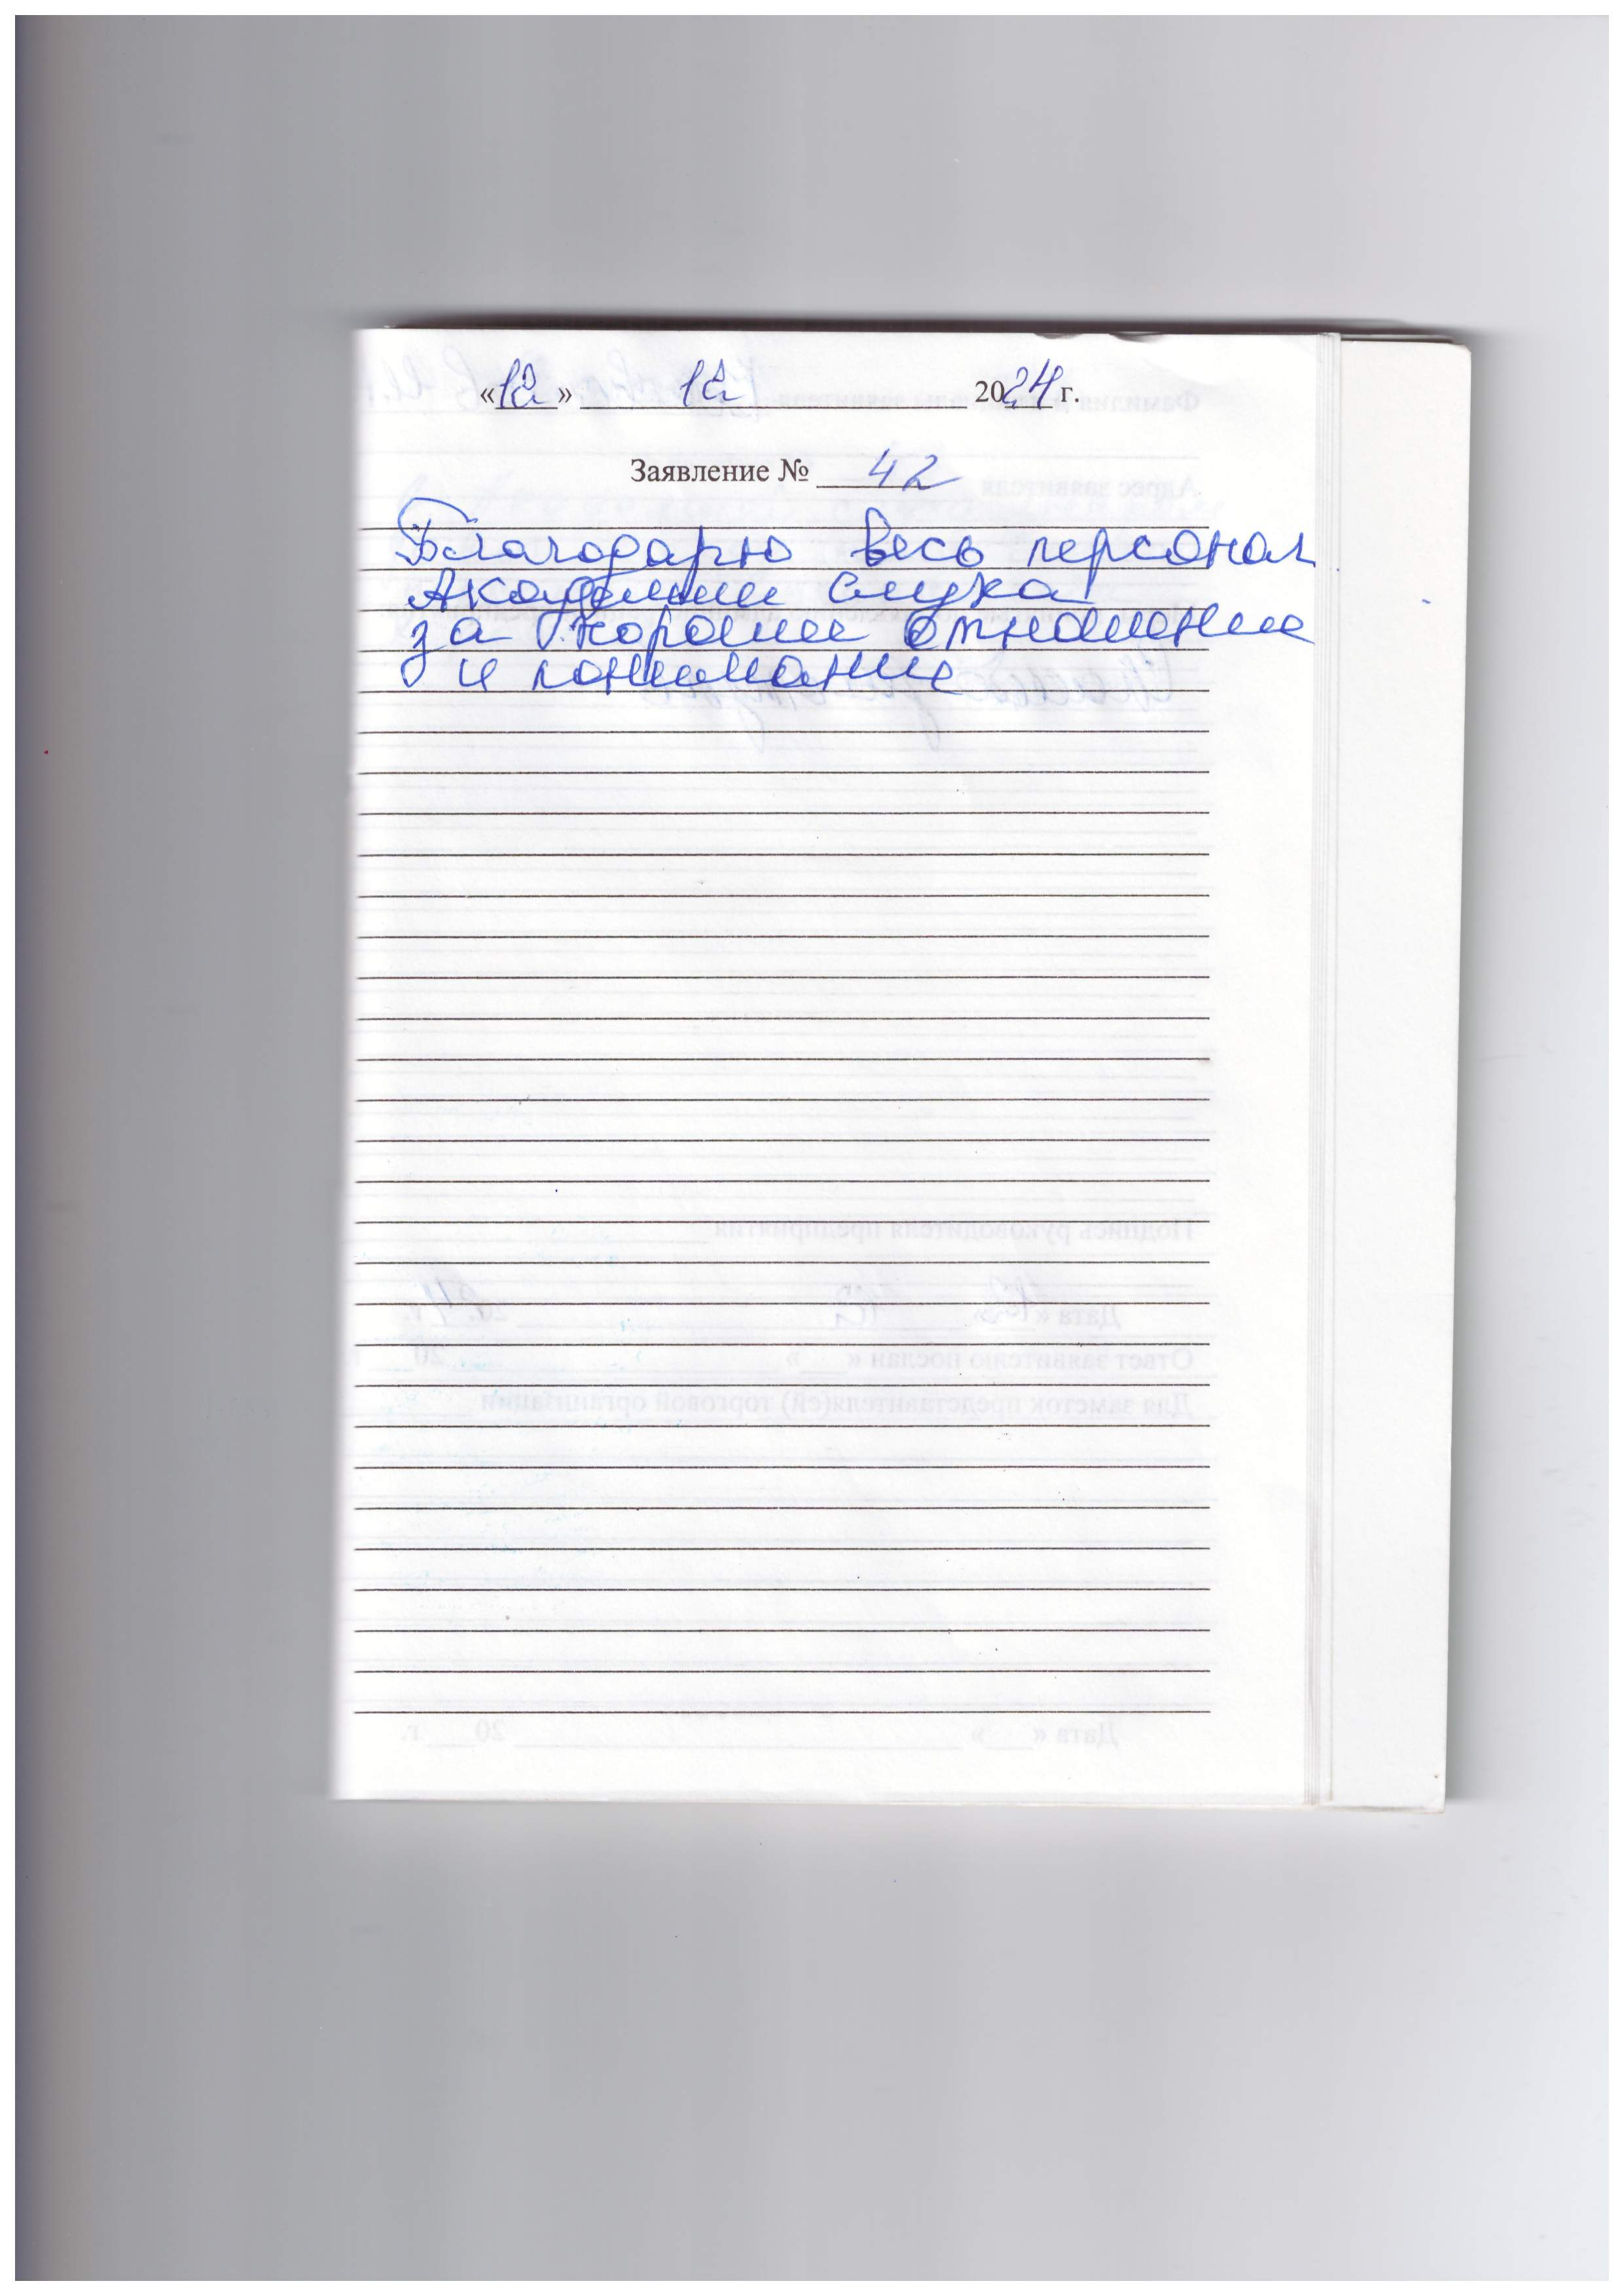 «12» 12 2024 г.
Заявление № 42
Благодарю весь персонал
Академии слуха
за хорошее отношение
и понимание